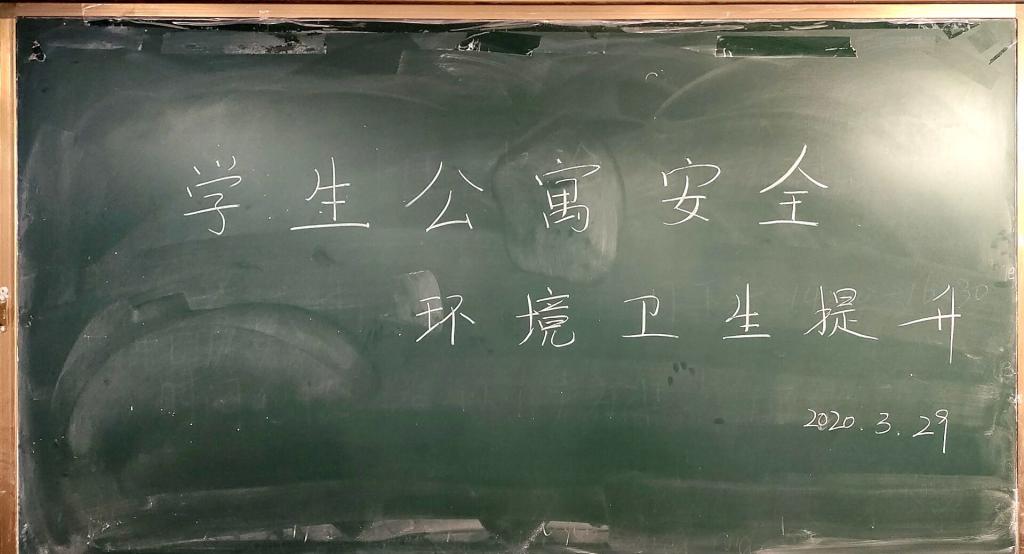 学生公寓安全
环境卫生提升
2020.3.29